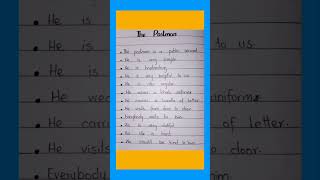 The Postman
• The postman is a public servant
• He is very simple
• He is hardworking
• He is very helpful to us
• He is also regular
• He wears a khaki uniform
• He carries a bundle of letter.
• He visits from door to door.
• Everybody waits to him
• He is very dutiful
• His life is hard
• We should be kind to him.
• He is
• He is to us.
• He is
• He wea uniform
• He carr of letter.
• He visits to door.
• Everybody